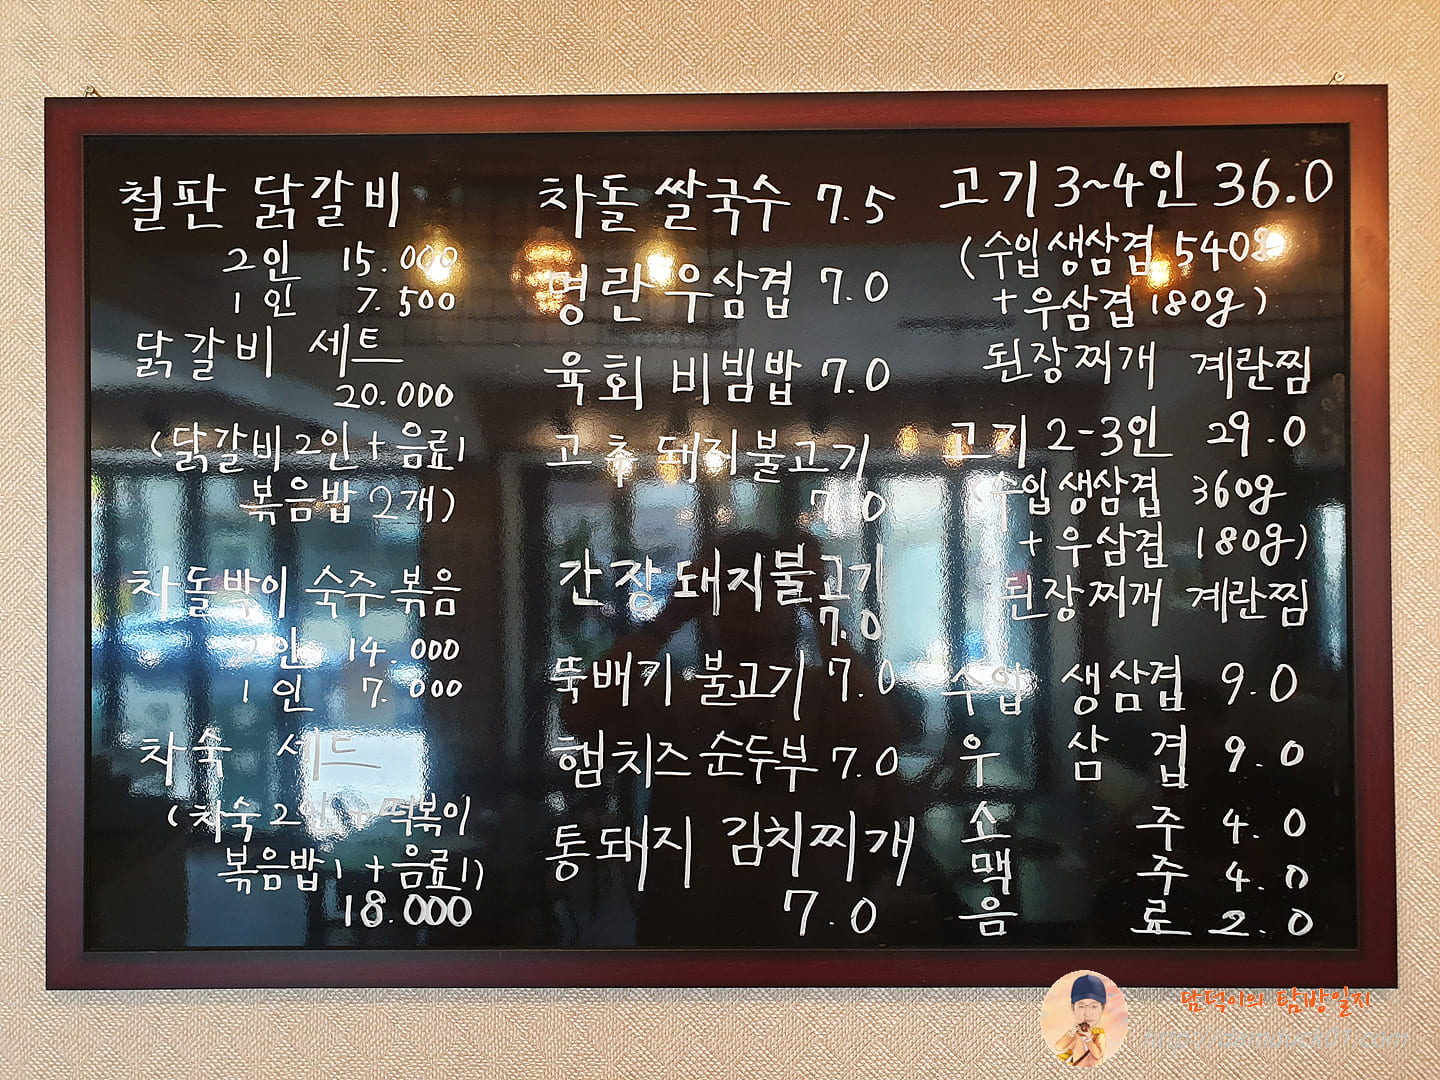 철판 닭갈비
2인 15.000
1인 7.500
닭갈비 세트
20.000
(닭갈비 2인 + 음료1
볶음밥 2개)
차돌박이 숙주볶음
2인 14.000
1인 7.000
차숙 세트
(차숙 2인 + 떡볶이
볶음밥1 + 음료1)
18.000
차돌 쌀국수 7.5
명란 우삼겹 7.0
육회 비빔밥 7.0
고추 돼지불고기
7.0
간장 돼지불고기
7.0
뚝배기 불고기 7.0
햄치즈 순두부 7.0
통돼지 김치찌개
7.0
고기 3~4인 36.0
(수입 생삼겹 540g
+ 우삼겹 180g)
된장찌개 계란찜
고기 2-3인 29.0
(수입 생삼겹 360g
+ 우삼겹 180g)
된장찌개 계란찜
수입 생삼겹 9.0
우 삼 겹 9.0
소 주 4.0
맥 주 4.0
음 료 2.0
담덕이의 탐방일지